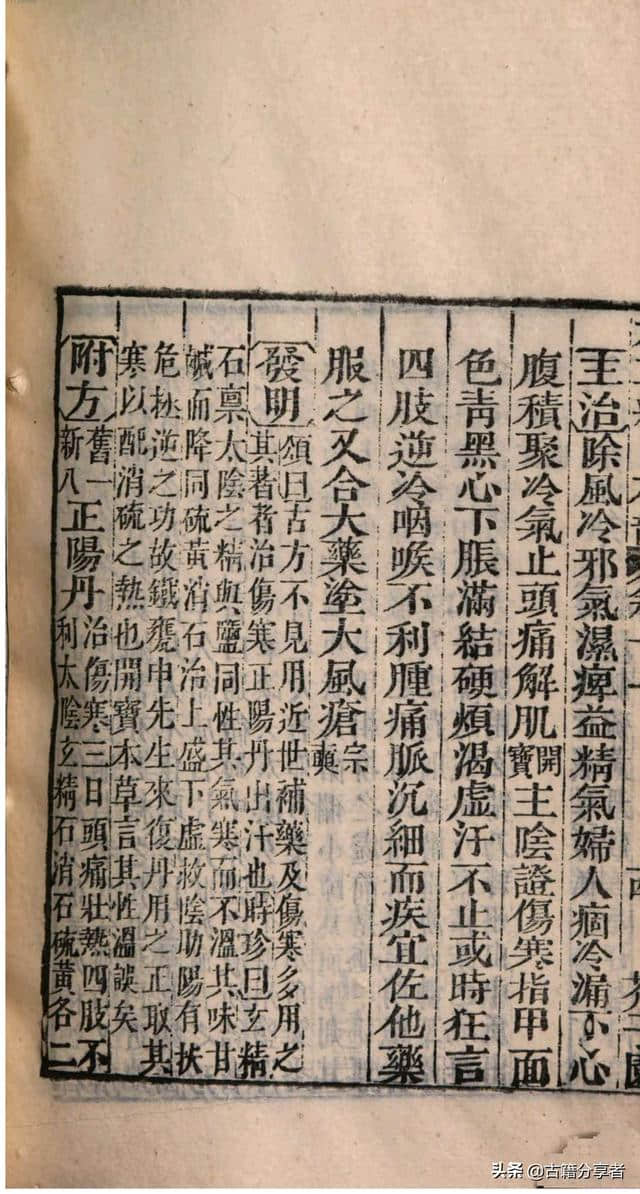 主治除風冷邪氣濕痺益精氣婦人痼冷漏下心
腹積聚冷氣止頭痛解肌開寶主陰證傷寒指甲面
色青黑心下脹滿結硬煩渴虛汗不止或時狂言
四肢逆冷咽喉不利腫痛脈沉細而疾宜佐他藥
服之又合大藥塗大風瘡宗奭
發明頌曰古方不見用近世補藥及傷寒多用之
其著者治傷寒正陽丹出汗也時珍曰玄精
石稟太陰之精與鹽同性其氣寒而不溫其味甘
鹹而降同硫黃消石治上盛下虛救陰助陽有扶
危拯逆之功故鐵甕申先生來復丹用之正取其
寒以配消硫之熱也開寶本草言其性溫誤矣
附方舊一新八正陽丹治傷寒三日頭痛壯熱四肢不
利太陰玄精石消石硫黃各二
头条 @古籍分享者